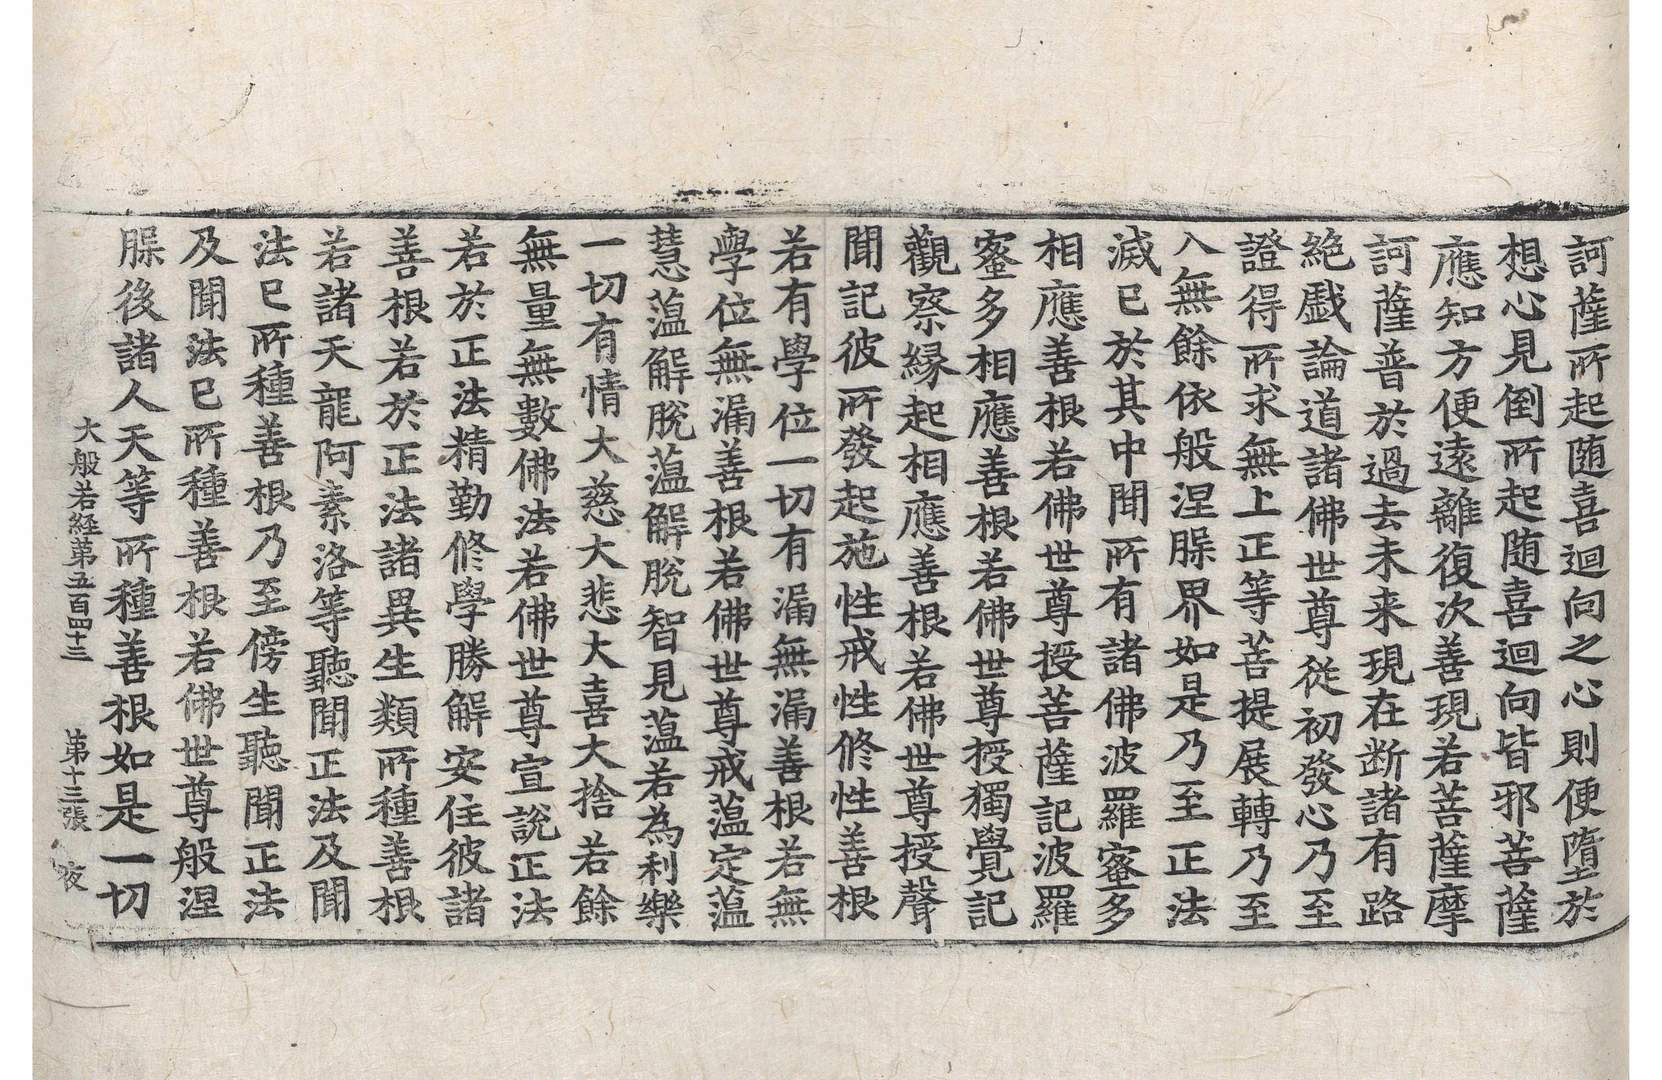 訶薩所起随喜迴向之心則便墮於
想心見倒所起随喜迴向皆邪菩薩
應知方便遠離復次善現若菩薩摩
訶薩普於過去未来現在断諸有路
絶戯論道諸佛世尊從初發心乃至
證得所求無上正等菩提展轉乃至
入無餘依般涅槃界如是乃至正法
滅已於其中間所有諸佛波羅蜜多
相應善根若佛世尊授菩薩記波羅
蜜多相應善根若佛世尊授獨覺記
觀察縁起相應善根若佛世尊授聲
聞記彼所發起施性戒性修性善根
若有學位一切有漏無漏善根若無
學位無漏善根若佛世尊戒蘊定蘊
慧蘊解脫蘊解脫智見蘊若為利樂
一切有情大慈大悲大喜大捨若餘
無量無數佛法若佛世尊宣說正法
若於正法精勤修學勝解安住彼諸
善根若於正法諸異生類所種善根
若諸天龍阿素洛等聽聞正法及聞
法已所種善根乃至傍生聽聞正法
及聞法已所種善根若佛世尊般涅
槃後諸人天等所種善根如是一切
大般若経第五百四十三 第十三張 夜